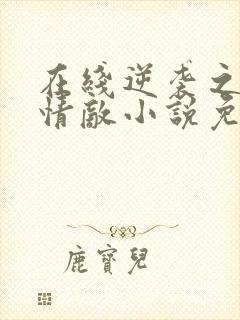 在线逆袭之
情敌小說免
鹿寶兒